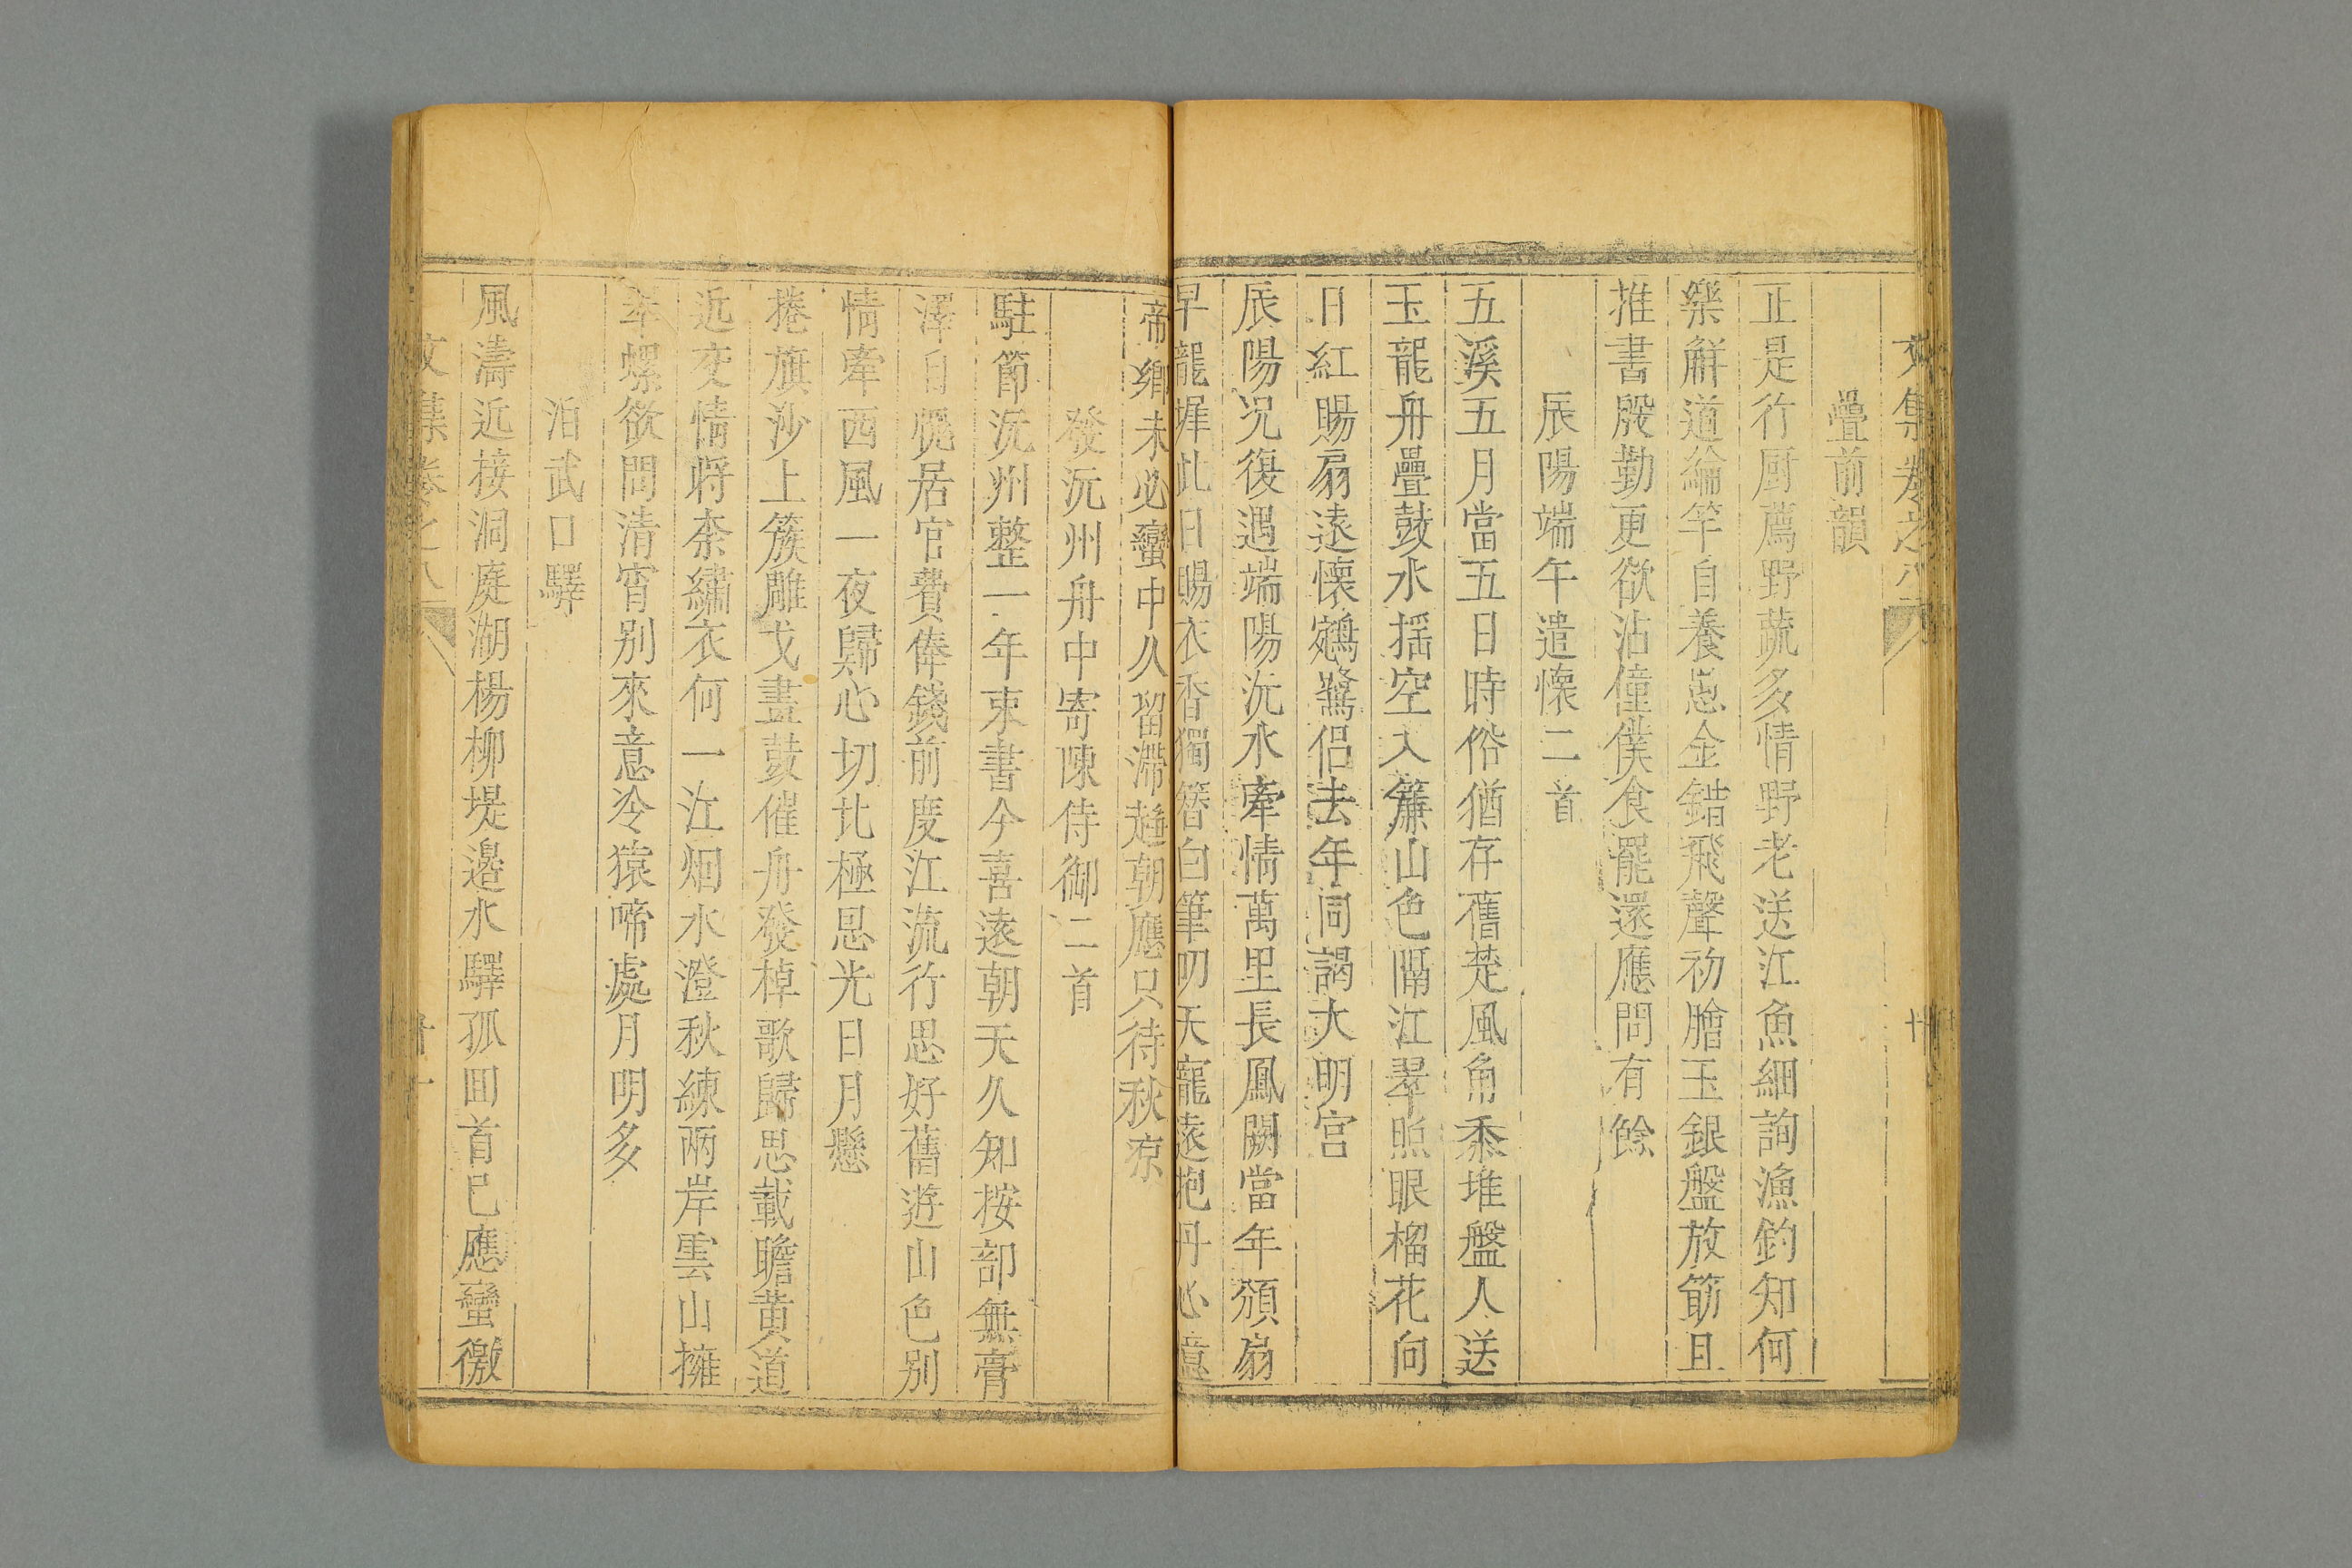 文集卷之八
疊前韻
正是行厨薦野蔬多情野老送江魚細詢漁釣知何
樂觧道綸竿自養愚金錯飛聲初膾玉銀盤放筯且
推書殷勤更欲沾僮僕食罷還應問有餘
辰陽端午遣懷二首
五溪五月當五日時俗猶存舊楚風角黍堆盤人送
玉龍舟疊鼓水揺空入簾山色隔江翠照眼榴花向
日紅賜扇逺懷鵷鷺侣去年同謁大明宫
辰陽况復遇端陽沅水牽情萬里長鳳闕當年頒扇
早龍墀此日賜衣香獨簪白筆叨天寵遠抱丹心意
帝鄉未必蠻中久留滯趍朝應只待秋凉
發沅州舟中寄陳侍御二首
駐節沅州整一年束書今喜逺朝天久知按部無膏
澤自愧居官費俸錢前度江流行思好舊遊山色别
情牽西風一夜歸心切北極恩光日月懸
捲旗沙上簇雕戈畫鼓催舟發棹歌歸思載瞻黄道
近交情将柰繡衣何一江烟水澄秋練兩岸雲山擁
翠螺欲問清宵别來意冷猿啼處月明多
泊武口驛
風濤近接洞庭湖楊柳堤邉水驛孤囬首已應蠻徼
文集卷之八